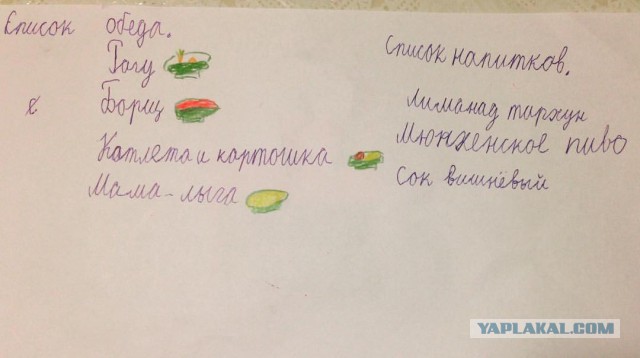 Список обеда.
Рагу
Борщ
Катлета и картошка
Мама-лыга
Список напитков.
Лиманад тархун
Мюнхенское пиво
Сок вишнёвый
YAPLAKAL.COM